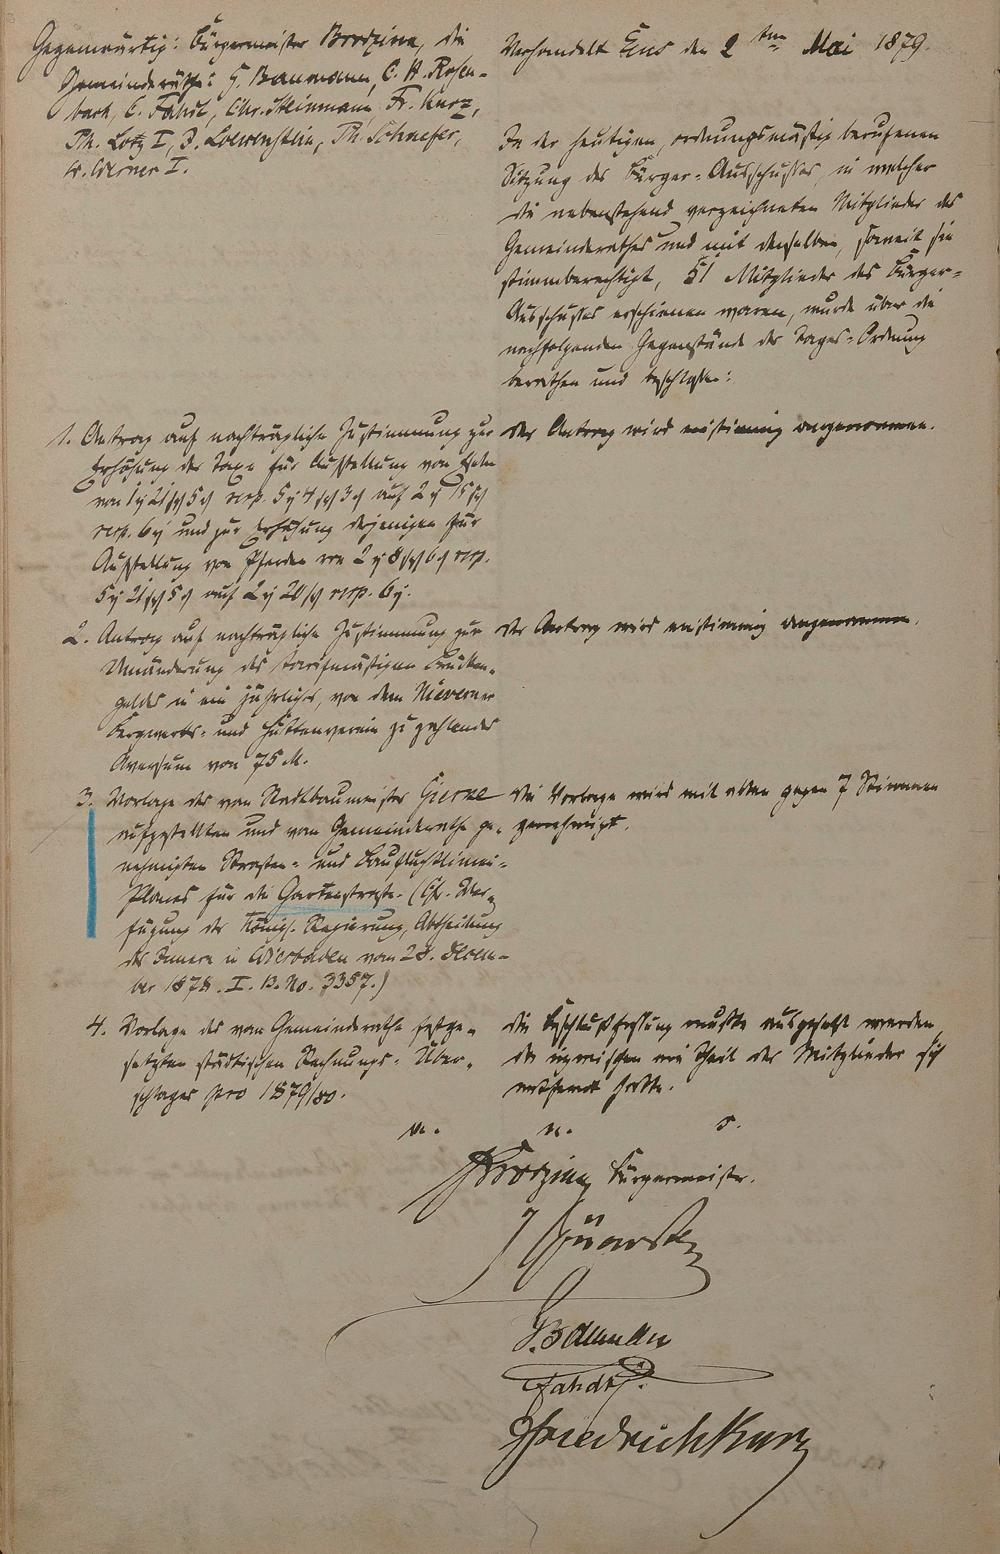 Gegenwärtig: Bürgermeister Brodzina, die
Gemeinderäthe: G. Baumann, C. H. Rosen-
bach, C. Fahdt, Chr. Heinmann, Fr. Kurz,
Th. Lotz I, J. Loewenstein, Th. Schaefer,
W. Werner I.
Verhandelt Ems den 2ten Mai 1879.
In der heutigen, ordnungsmäßig berufenen
Sitzung des Bürger-Ausschusses, in welcher
die nebenstehend verzeichneten Mitglieder des
Gemeinderathes und mit denselben, soweit sie
stimmberechtigt, 51 Mitglieder des Bürger-
Ausschusses erschienen waren, wurde über die
nachfolgenden Gegenstände der Tages-Ordnung
berathen und beschlossen:
1. Antrag auf nachträgliche Zustimmung zur
Erhöhung der Taxe für Aufstellung von Eseln
von 1 21 5 resp. 5 4 3 auf 2 15
resp. 6 und zur Erhöhung derjenigen für
Aufstellung von Pferden von 2 8 6 resp.
5 21 5 auf 2 20 resp. 6.
Der Antrag wird einstimmig angenommen.
2. Antrag auf nachträgliche Zustimmung zur
Umänderung des tarifmäßigen Brücken-
geldes in ein jährliches, von dem Nieverner
Bergwerks- und Hüttenverein zu zahlendes
Aversum von 75 M.
Der Antrag wird einstimmig angenommen.
3. Vorlage des von Stadtbaumeister Gierke
aufgestellten und vom Gemeinderathe ge-
nehmigten Straßen- und Baufluchtlinien-
Planes für die Gartenstraße. (Cfr. Ver-
fügung der Königl. Regierung, Abtheilung
des Innern in Wiesbaden vom 28. Novem-
ber 1878. I. B. No. 3357.)
Die Vorlage wird mit allen gegen 7 Stimmen
genehmigt.
4. Vorlage des vom Gemeinderathe festge-
setzten städtischen Rechnungs-Über-
schlages pro 1879/80.
Die Beschlußfassung mußte ausgesetzt werden,
da inzwischen ein Theil der Mitglieder sich
entfernt hatte.
v. u.
Brodzina Bürgermeister.
G. Baumann
Fahdt
Friedrich Kurz